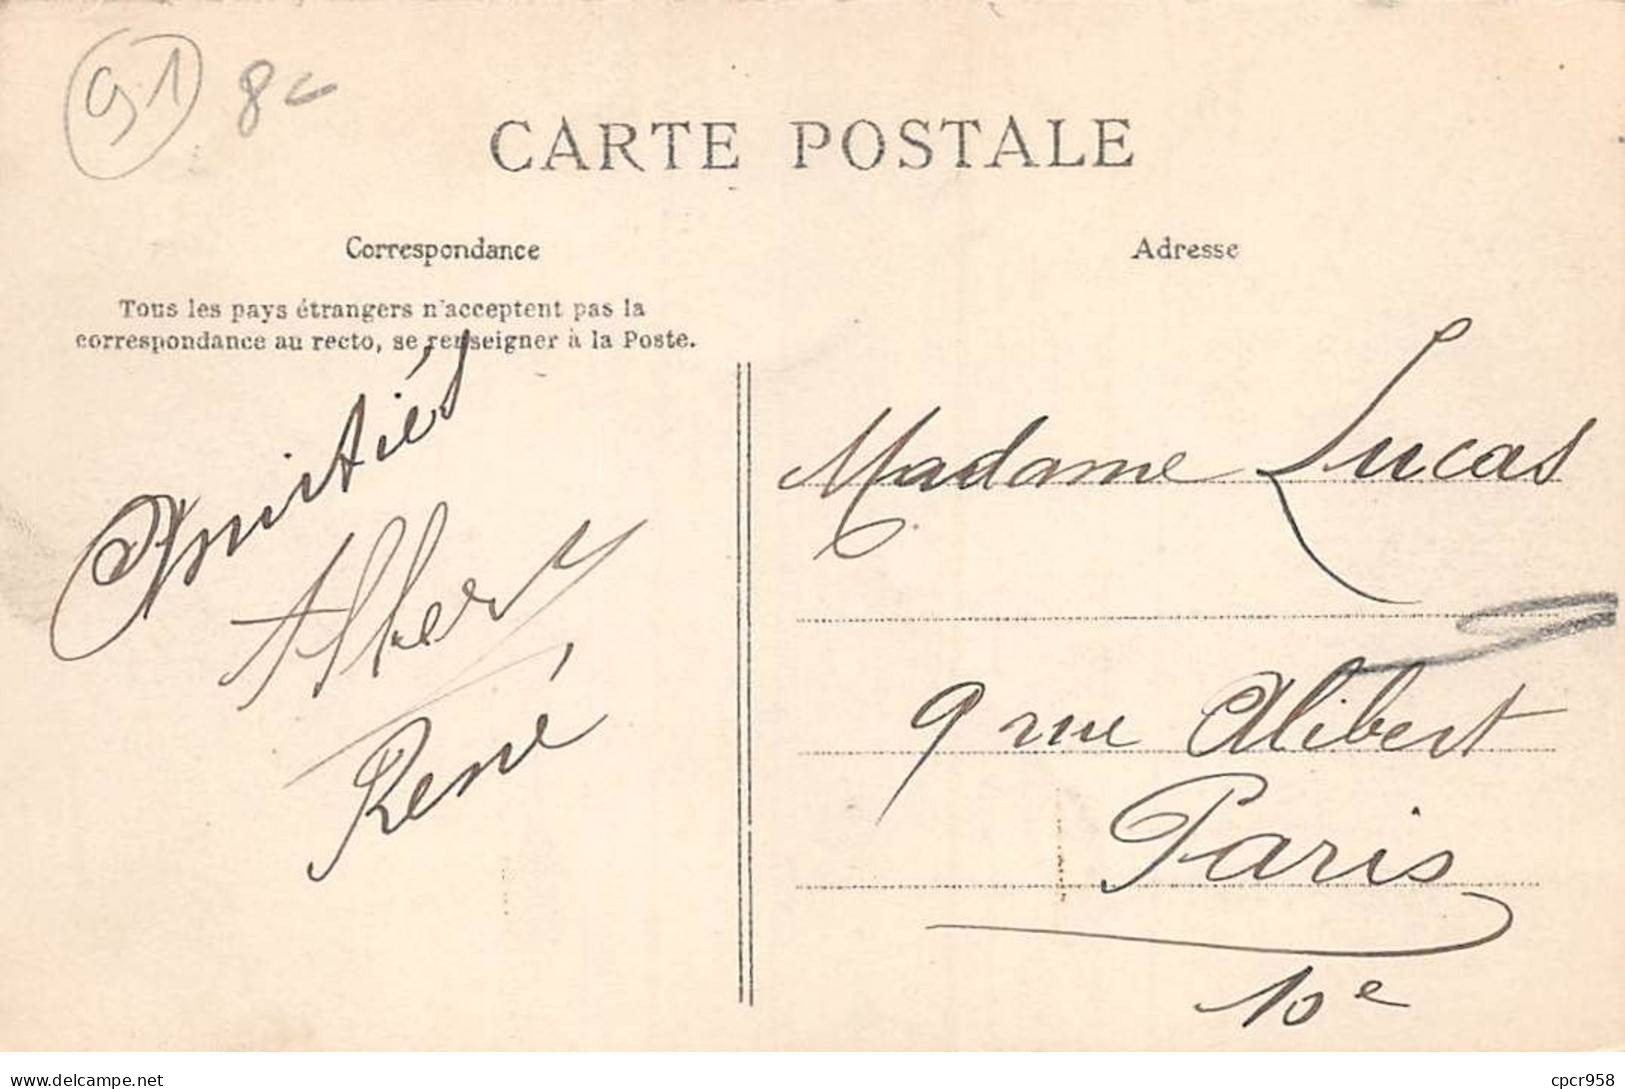 91 8
CARTE POSTALE
Correspondance
Tous les pays étrangers n'acceptent pas la
correspondance au recto, se renseigner à la Poste.
Amitiés
Albert
René
Adresse
Madame Lucas
9 rue Alibert
Paris
10e
delcampe.net
cpcr958